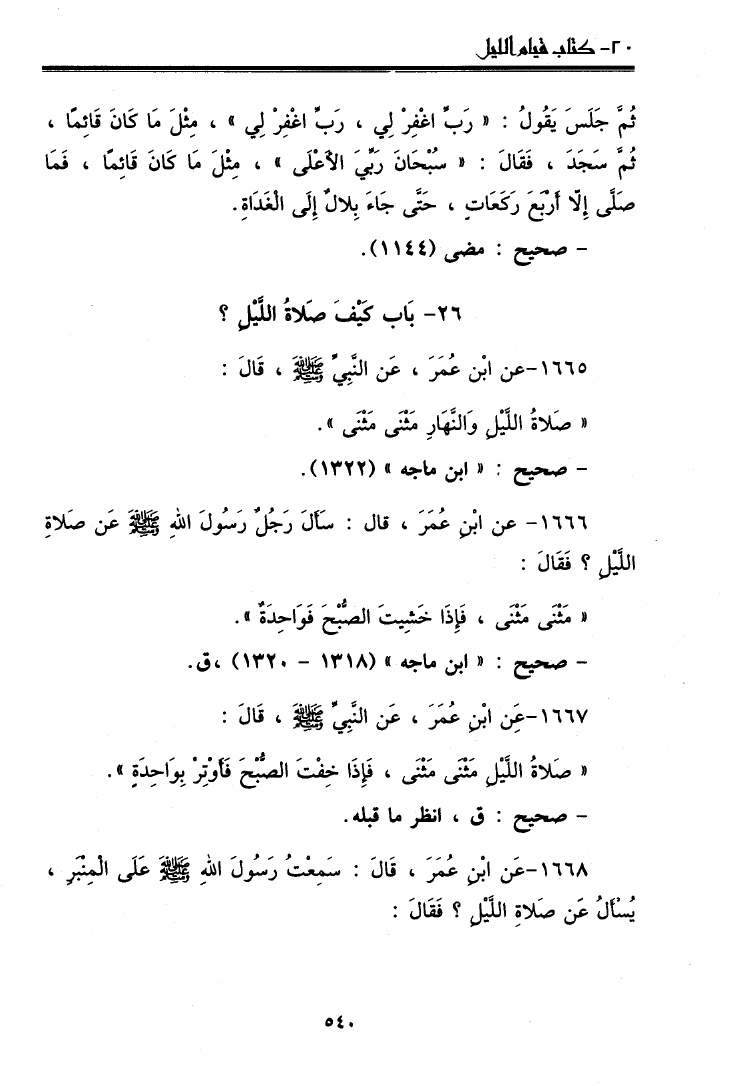 ٢٠- كتاب قيام الليل
ثُمَّ جَلَسَ يَقُولُ : « رَبِّ اغْفِرْ لِي ، رَبِّ اغْفِرْ لِي » ، مِثْلَ مَا كَانَ قَائِمًا ،
ثُمَّ سَجَدَ ، فَقَالَ : « سُبْحَانَ رَبِّيَ الأَعْلَى » ، مِثْلَ مَا كَانَ قَائِمًا ، فَمَا
صَلَّى إِلّا أَرْبَعَ رَكَعَاتٍ ، حَتَّى جَاءَ بِلالٌ إِلَى الْغَدَاةِ.
– صحيح : مضى (١١٤٤).
٢٦- بَاب كَيْفَ صَلاةُ اللَّيْلِ ؟
١٦٦٥-عن ابْنِ عُمَرَ ، عَن النَّبِيِّ ﷺ ، قَالَ :
« صَلاةُ اللَّيْلِ وَالنَّهَارِ مَثْنَى مَثْنَى ».
– صحيح : « ابن ماجه » (١٣٢٢).
١٦٦٦- عن ابْنِ عُمَرَ ، قال : سَأَلَ رَجُلٌ رَسُولَ اللهِ ﷺ عَن صَلاةِ
اللَّيْلِ ؟ فَقَالَ :
« مَثْنَى مَثْنَى ، فَإِذَا خَشِيتَ الصُّبْحَ فَوَاحِدَةٌ ».
– صحيح : « ابن ماجه » (١٣١٨ – ١٣٢٠) ،ق.
١٦٦٧-عَن ابْنِ عُمَرَ ، عَن النَّبِيِّ ﷺ ، قَالَ :
« صَلاةُ اللَّيْلِ مَثْنَى مَثْنَى ، فَإِذَا خِفْتَ الصُّبْحَ فَأَوْتِرْ بِوَاحِدَةٍ ».
– صحيح : ق ، انظر ما قبله.
١٦٦٨-عَن ابْنِ عُمَرَ ، قَالَ : سَمِعْتُ رَسُولَ اللهِ ﷺ عَلَى الْمِنْبَرِ ،
يُسْأَلُ عَن صَلاةِ اللَّيْلِ ؟ فَقَالَ :
٥٤٠